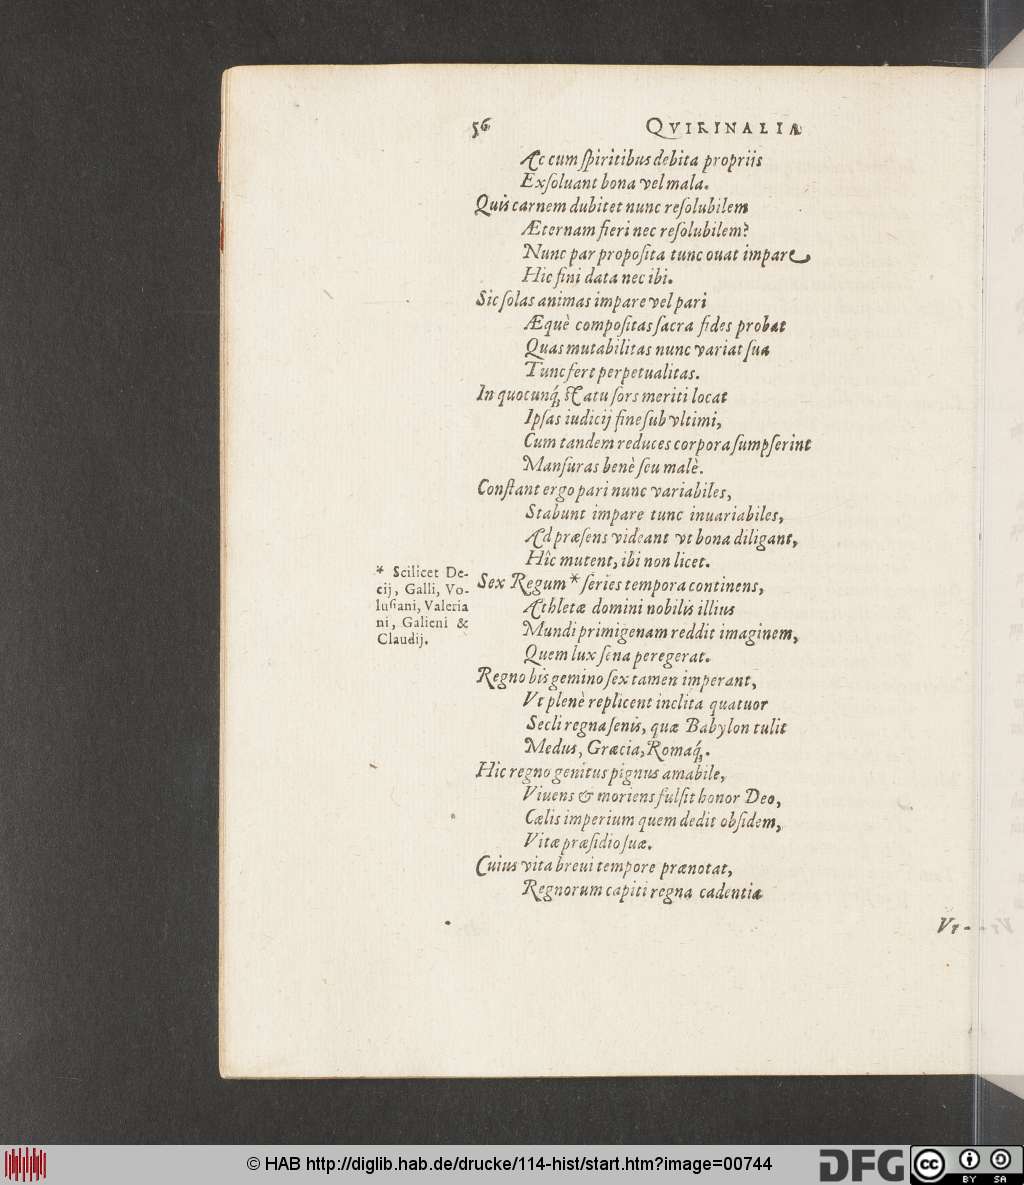 56 QVIRINALIA
Ac cum ſpiritibus debita propriis
Exſoluant bona vel mala.
Quis carnem dubitet nunc reſolubilem
Æternam fieri nec reſolubilem?
Nunc par propoſita tunc ouat impare
Hic fini data nec ibi.
Sic ſolas animas impare vel pari
Æquè compoſitas ſacra fides probat
Quas mutabilitas nunc variat ſua
Tunc fert perpetualitas.
In quocunq́; ſtatu ſors meriti locat
Ipſas iudicij fine ſub vltimi,
Cum tandem reduces corpora ſumpſerint
Manſuras benè ſeu malè.
Conſtant ergo pari nunc variabiles,
Stabunt impare tunc inuariabiles,
Ad præſens videant vt bona diligant,
Hîc mutent, ibi non licet.
* Scilicet De-
cij, Galli, Vo-
luſiani, Valeria
ni, Galieni &
Claudij.
Sex Regum * ſeries tempora continens,
Athletæ domini nobilis illius
Mundi primigenam reddit imaginem,
Quem lux ſena peregerat.
Regno bis gemino ſex tamen imperant,
Vt plenè replicent inclita quatuor
Secli regna ſenis, quæ Babylon tulit
Medus, Græcia, Romaq́;.
Hic regno genitus pignus amabile,
Viuens & moriens fulſit honor Deo,
Cælis imperium quem dedit obſidem,
Vitæ præſidio ſuæ.
Cuius vita breui tempore prænotat,
Regnorum capiti regna cadentia
Vt-
© HAB http://diglib.hab.de/drucke/114-hist/start.htm?image=00744
DFG
cc
BY SA